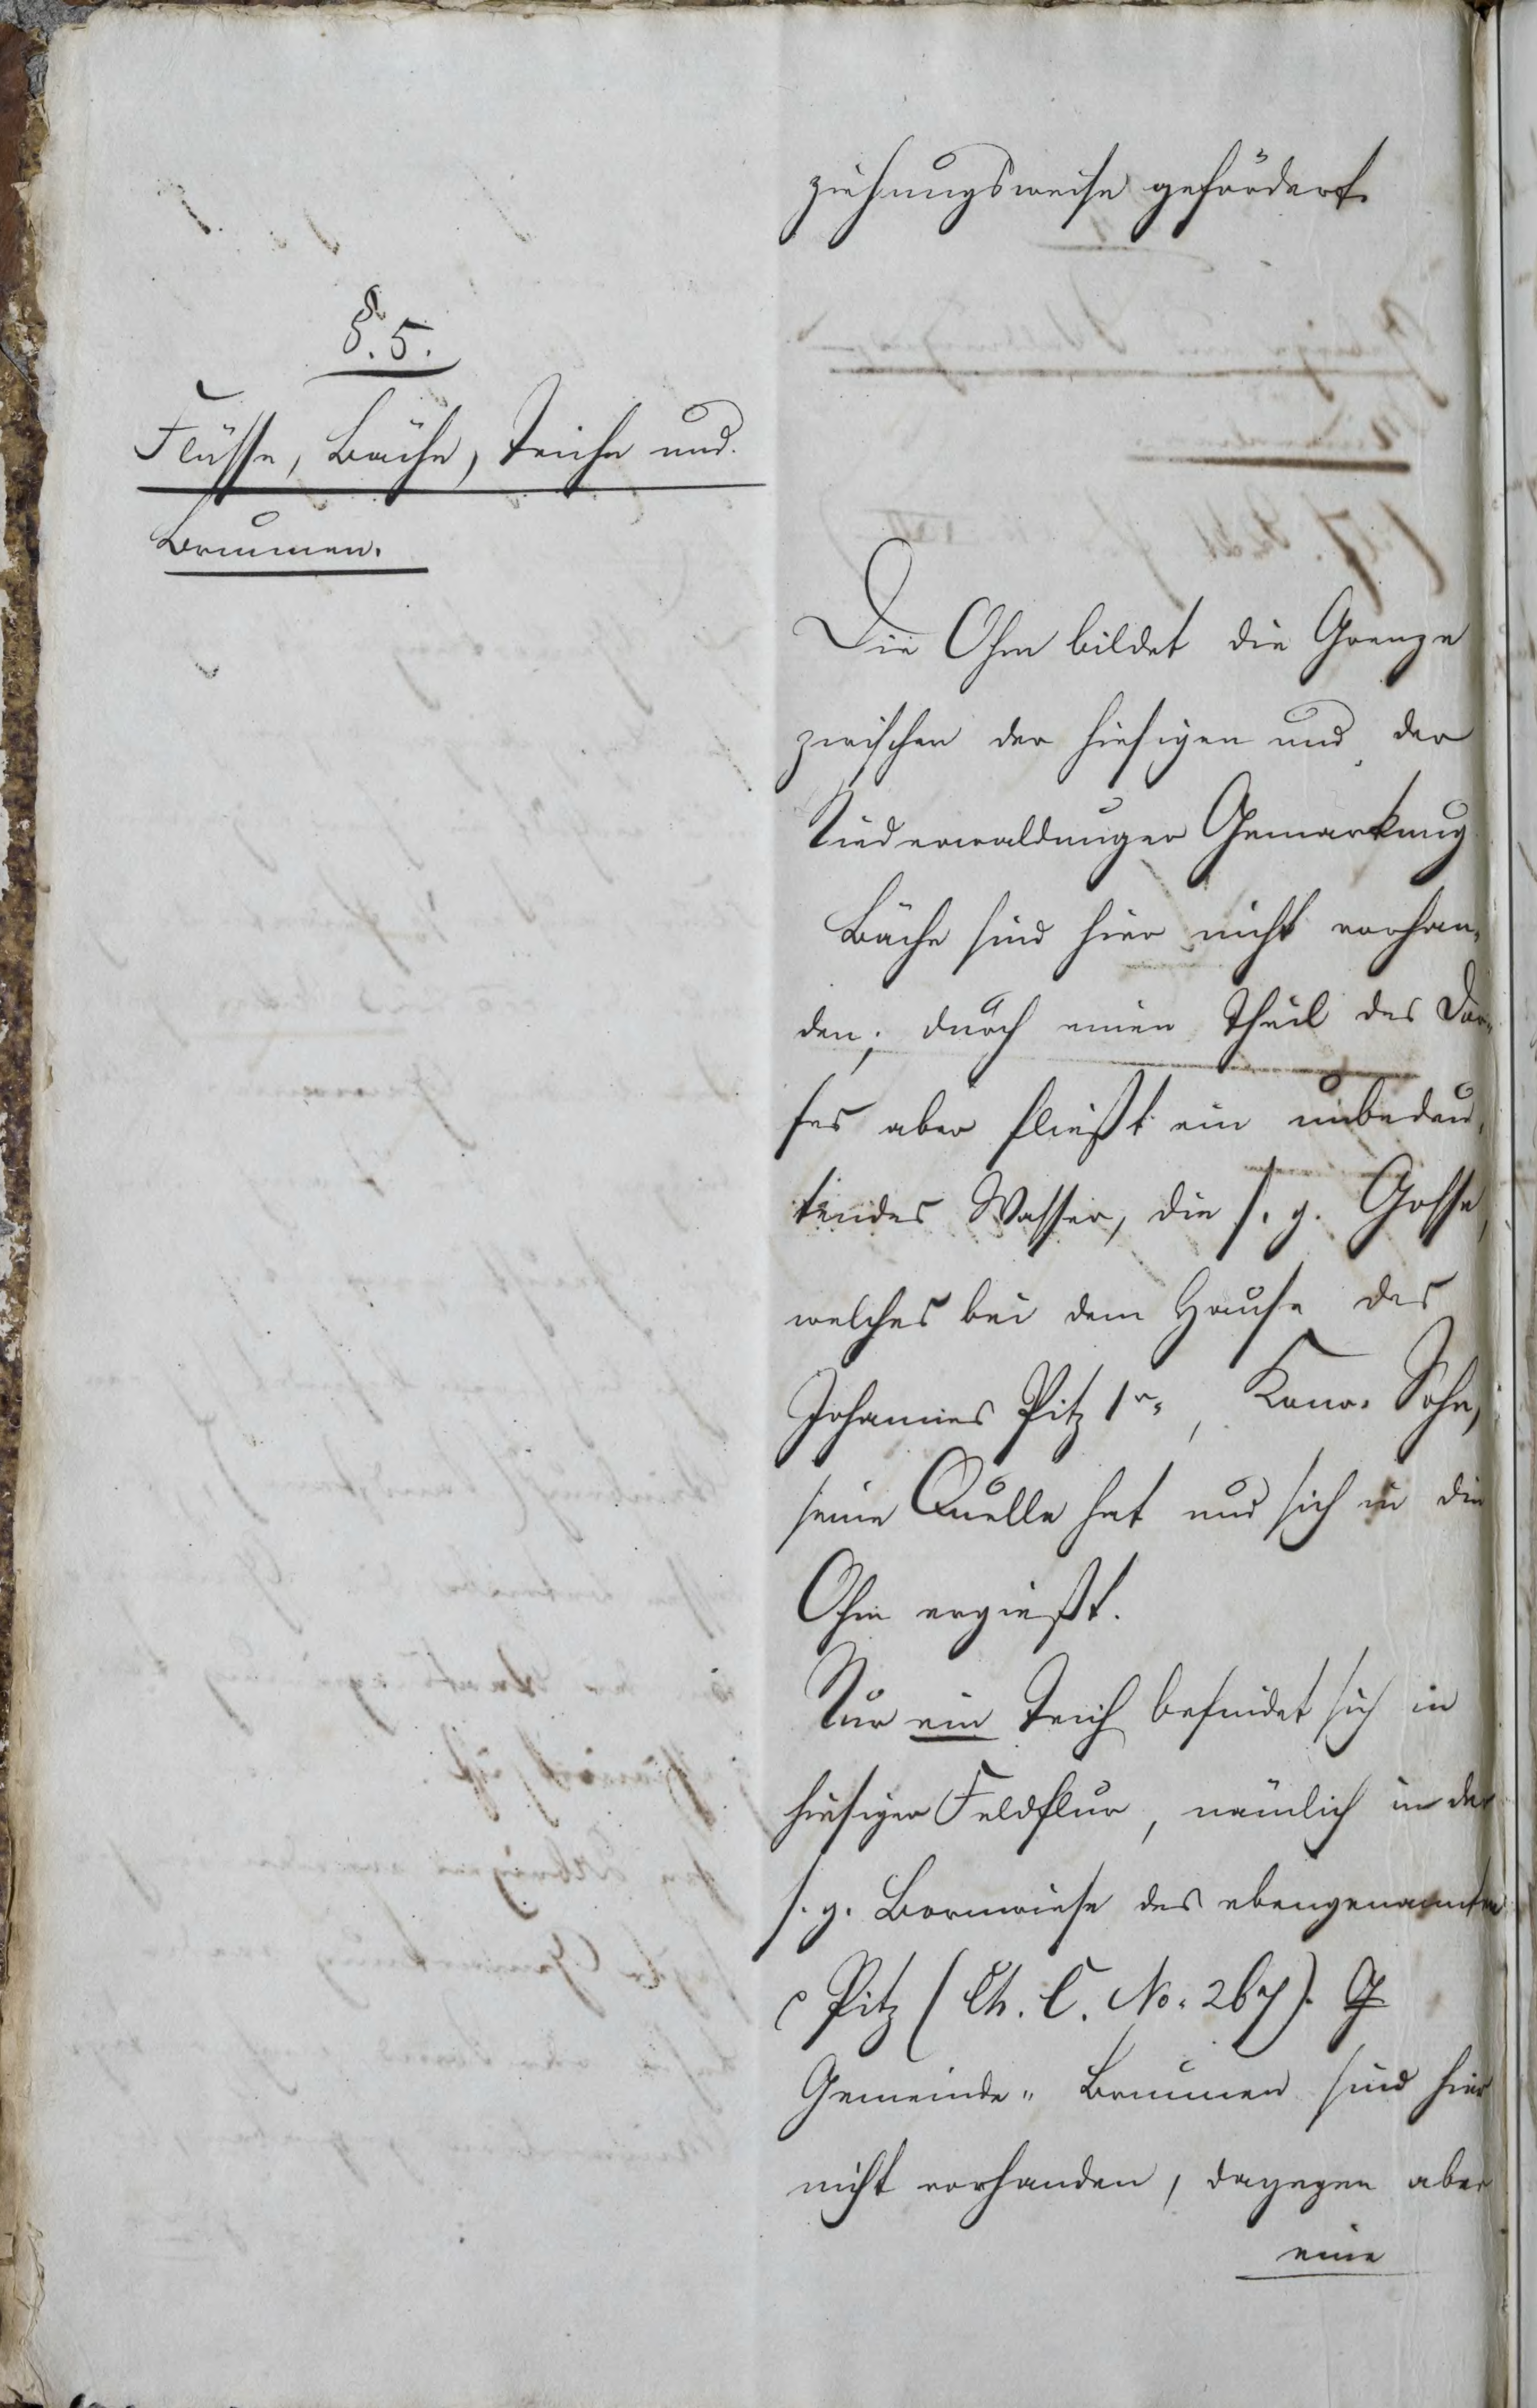 ziehungsweise gefördert.
§. 5.
Flüsse, Bäche, Teiche und
Brunnen.
Die Ohm bildet die Grenze
zwischen der hiesigen und der
Niederwaldunger Gemarkung
Bäche sind hier nicht vorhan-
den; durch einen Theil des Dor-
fes aber fließt ein unbedeu-
tendes Wasser, die s. g. Gosse,
welches bei dem Hause des
Johannes Pitz 1r., Konr. Sohn,
seine Quelle hat und sich in die
Ohm ergießt.
Nur ein Teich befindet sich in
hiesiger Feldflur, nämlich in der
s. g. Bornwiese des ebengenannten
Pitz (Ch. C. No. 267).
Gemeinde-Brunnen sind hier
nicht vorhanden, dagegen aber
eine